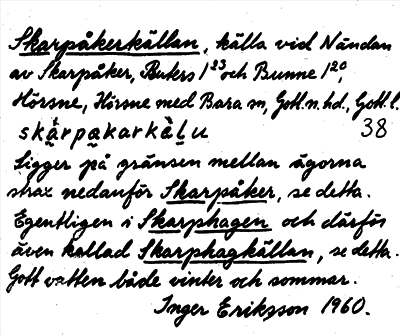 Skarpåkerkällan, källa vid Nändan
av Skarpåker, Buters 1²³ och Bunne 1²⁰,
Hörsne, Hörsne med Bara sn, Gotl.n.hd., Gotl.l.
skàrpakarkä̀ḷu 38
Ligger på gränsen mellan ägorna
strax nedanför Skarpåker, se detta.
Egentligen i Skarphagen och därför
även kallad Skarphagkällan, se detta.
Gott vatten både vinter och sommar.
Inger Eriksson 1960.